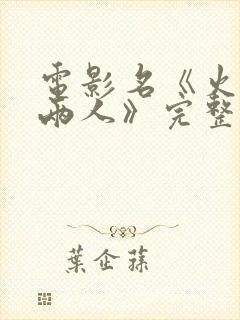 電影名《火
兩人》完整
葉企蓀